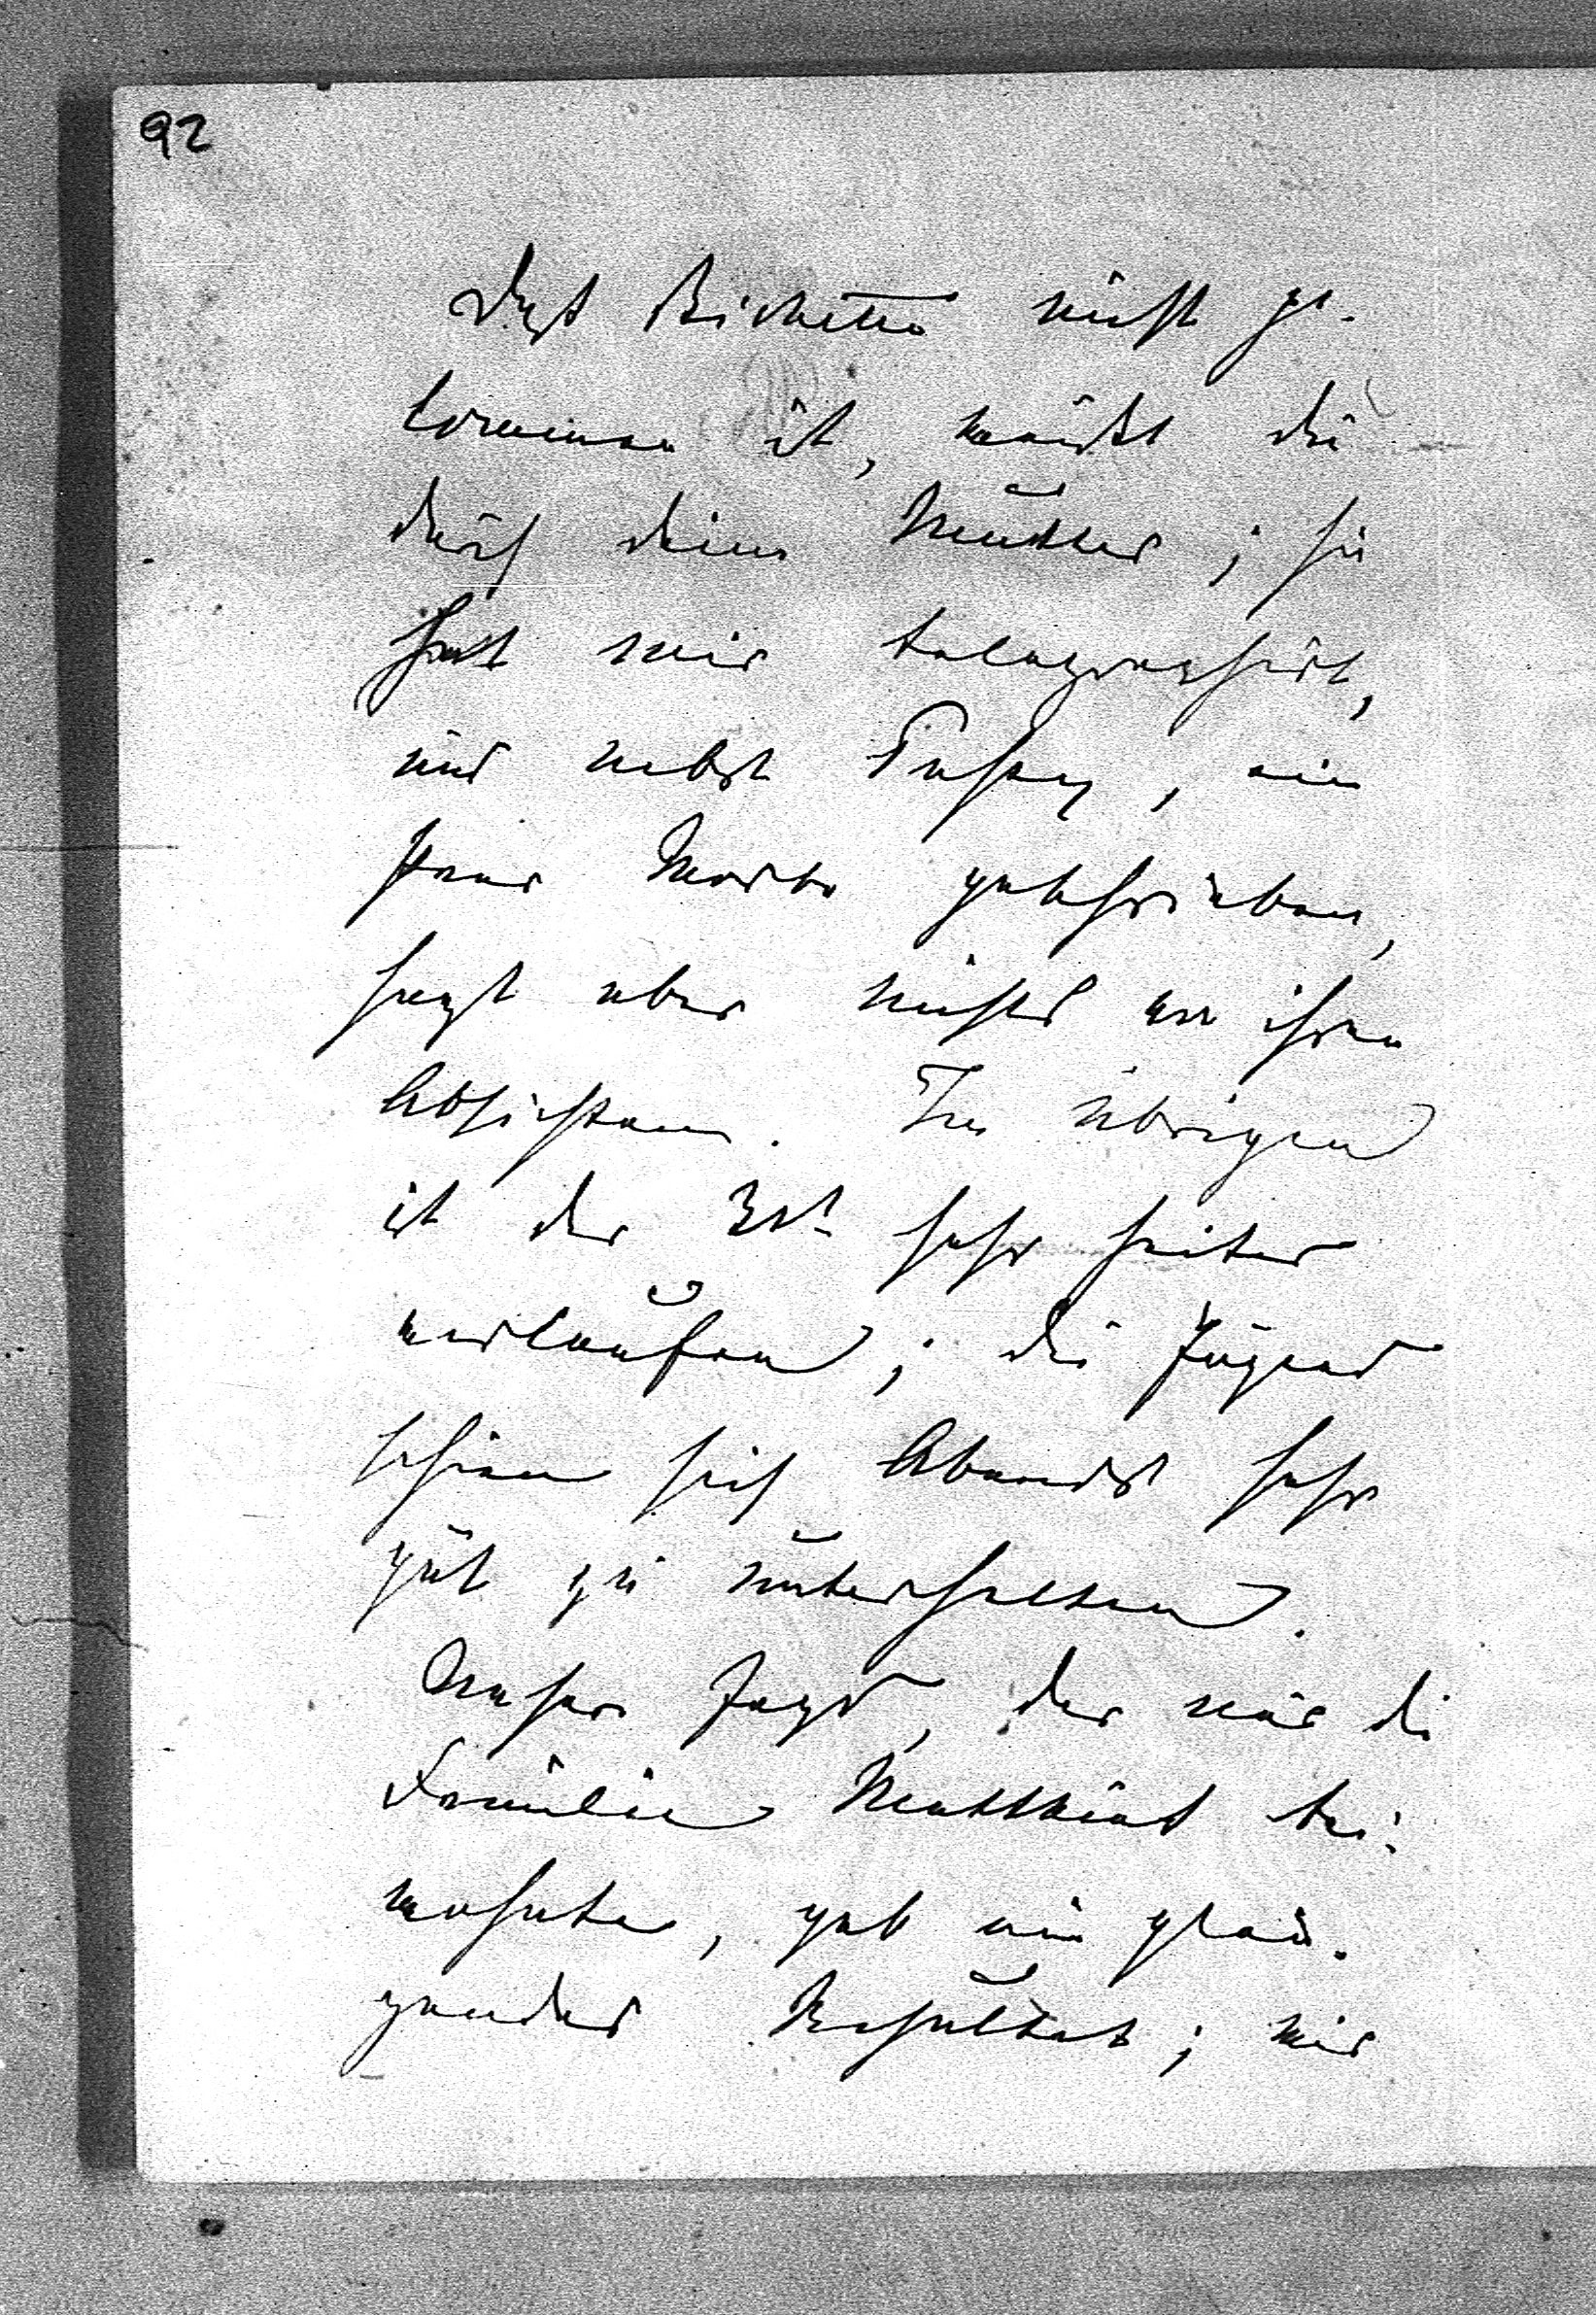 92
Daß Bichette nicht ge-
kommen ist, weißt du
durch deine Mutter; sie
hat mir telegraphirt,
und nebst Pussy, ein
paar Worte geschrieben,
sagt aber nichts von ihren
Absichten. Im übrigen
ist der 3te sehr heiter
verlaufen; die Jugend
schien sich Abends sehr
gut zu unterhalten.
Unsere Jagd, der nur die
Familie bei-
wohnte, gab ein
Resultat; wir